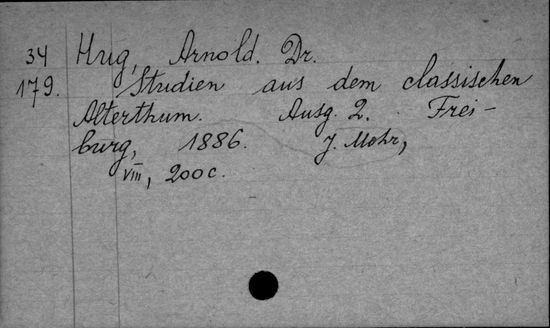 34 Hug, Arnold. Dr.
179. Studien aus dem classischen
Alterthum. Ausg. 2. Frei-
burg, 1886. J. Mohr,
VIII, 200 c.